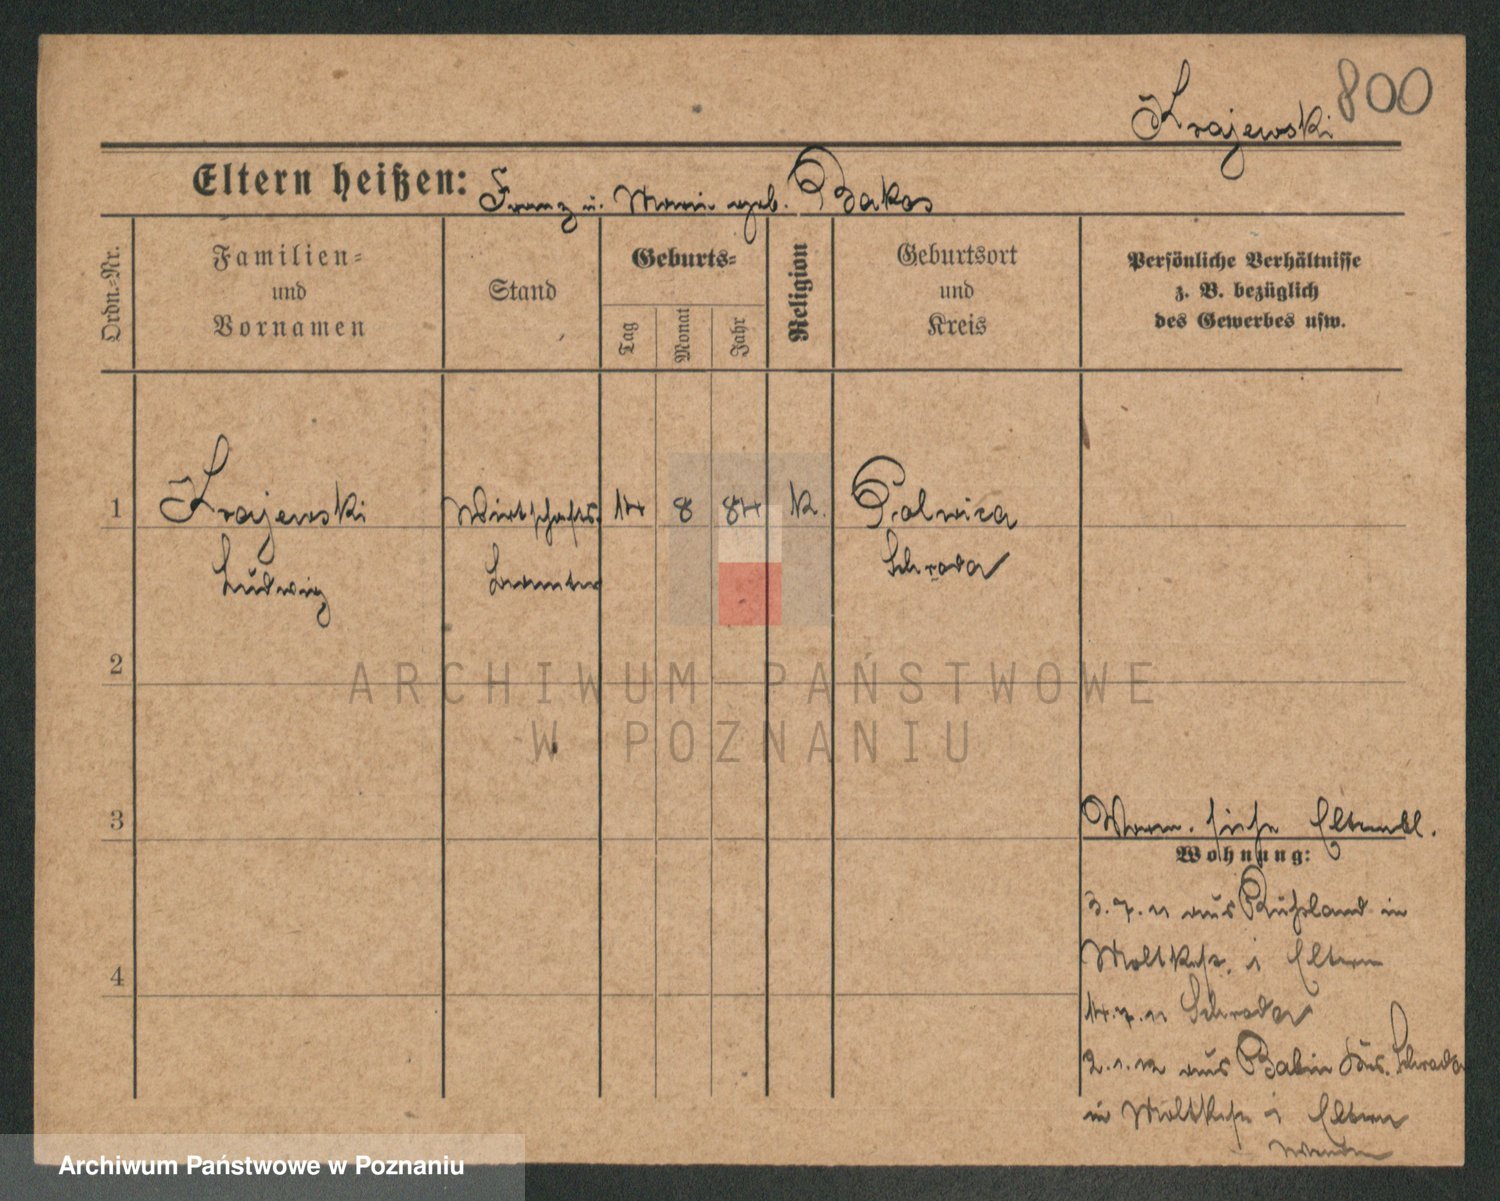 Krajewski 800
Eltern heißen: Franz u. Marie geb. Bakos
Ordn.-Nr.
Familien-
und
Vornamen
Stand
Geburts-
Tag
Monat
Jahr
Religion
Geburtsort
und
Kreis
Persönliche Verhältnisse
z. B. bezüglich
des Gewerbes usw.
1 Krajewski Wirtschafts- 14 8 84 k. Polwica
Ludwig Beamter Schroda
2
3
4
Verm. siehe Elternbl.
Wohnung:
3.7.11 aus Rußland in
Moltkestr. Eltern
14.7.11 Schroda
2.1.12 aus Babin Schroda
in Moltkestr Eltern
ARCHIWUM PAŃSTWOWE
W POZNANIU
Archiwum Państwowe w Poznaniu